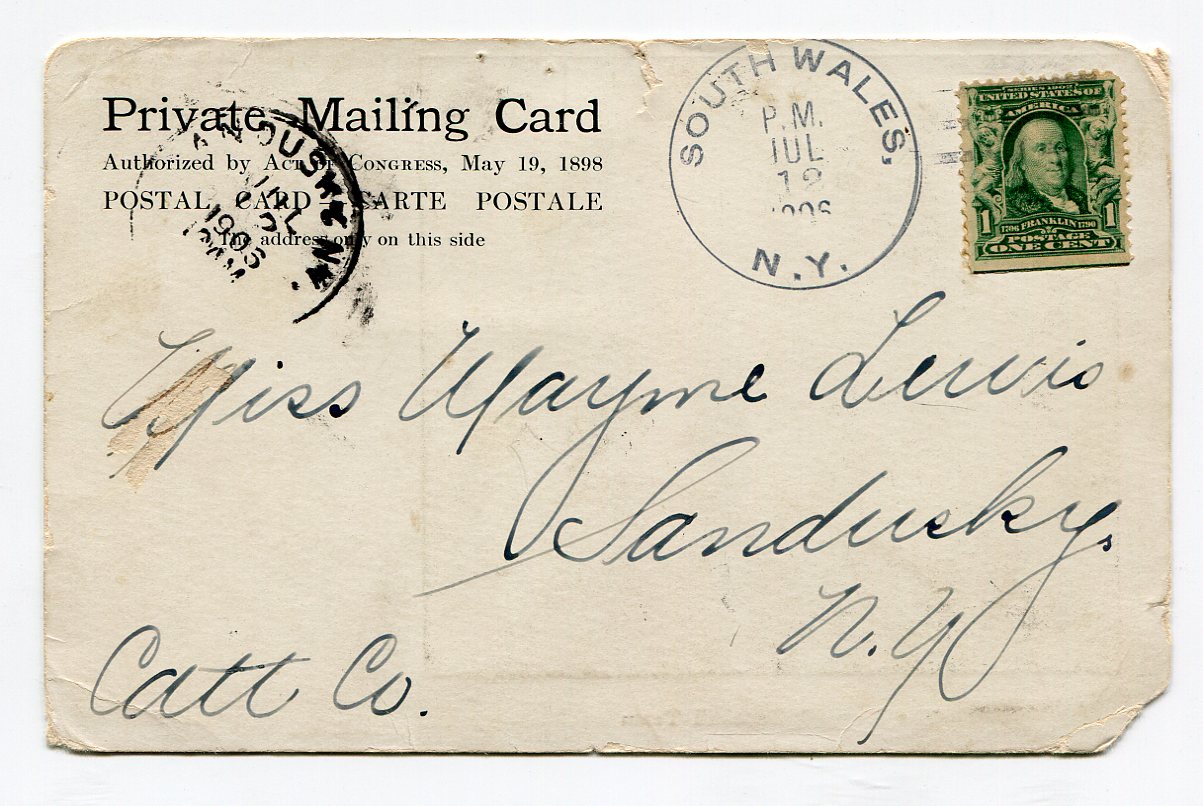 Private Mailing Card
Authorized by Act of Congress, May 19, 1898
POSTAL CARD CARTE POSTALE
The address only on this side
ANDUSKY N.Y.
JUL
1906
SOUTH WALES,
P.M.
JUL
12
1906
N.Y.
SERIES 1902
UNITED STATES OF
AMERICA
1 1
1706 FRANKLIN 1790
POSTAGE
ONE CENT
Miss Mayme Lewis
Sandusky,
N.Y
Catt Co.